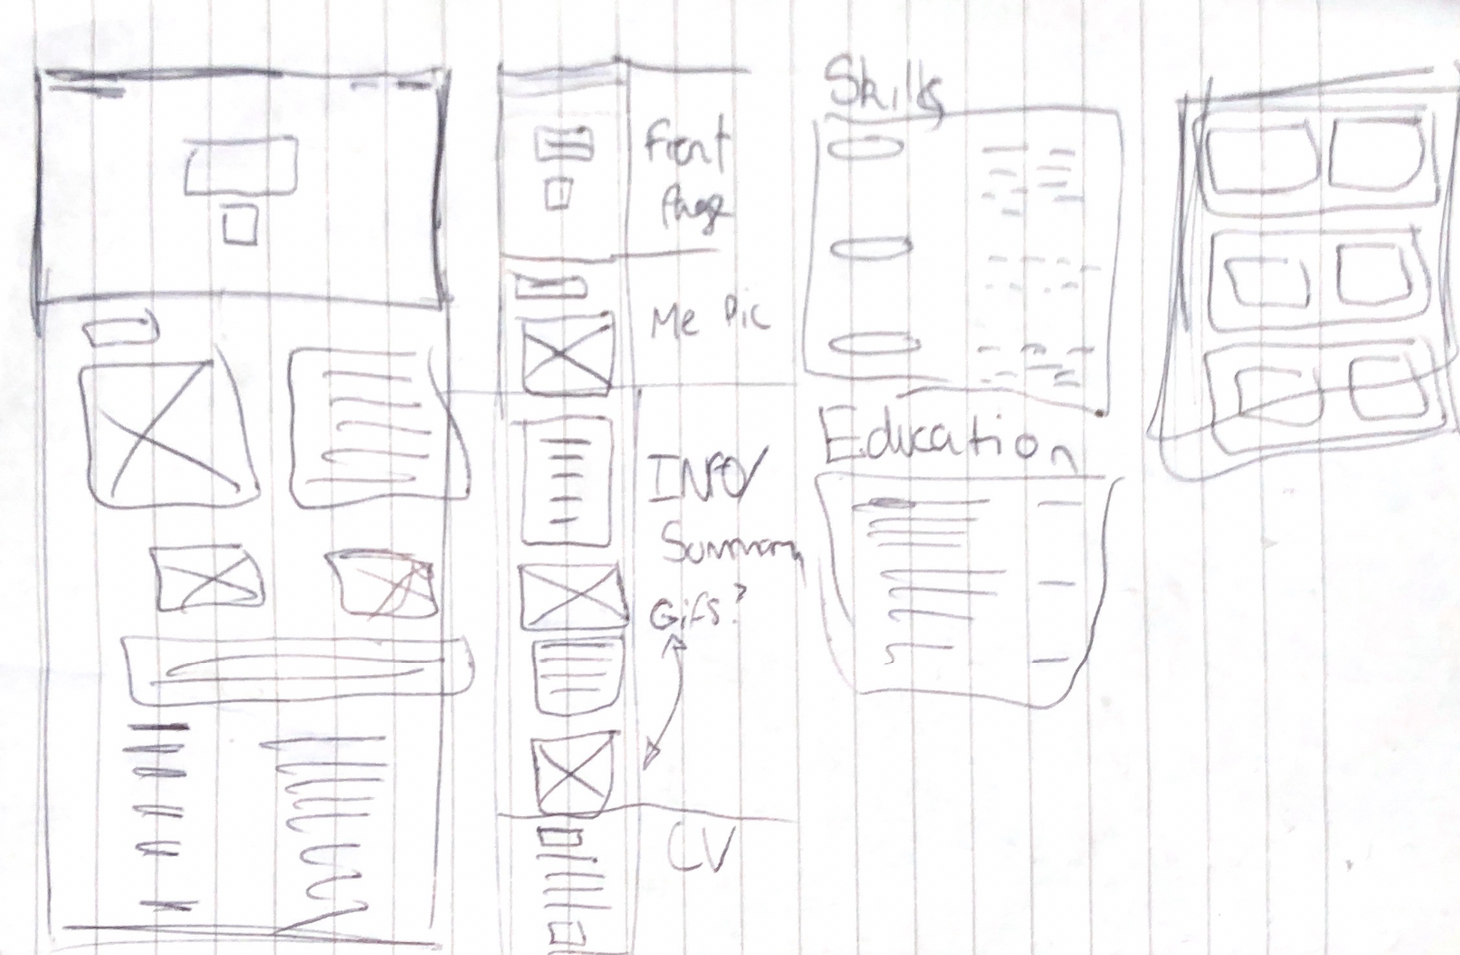 Front
Page
Me Pic
INFO/
Summary
Gifs?
CV
Skills
Education